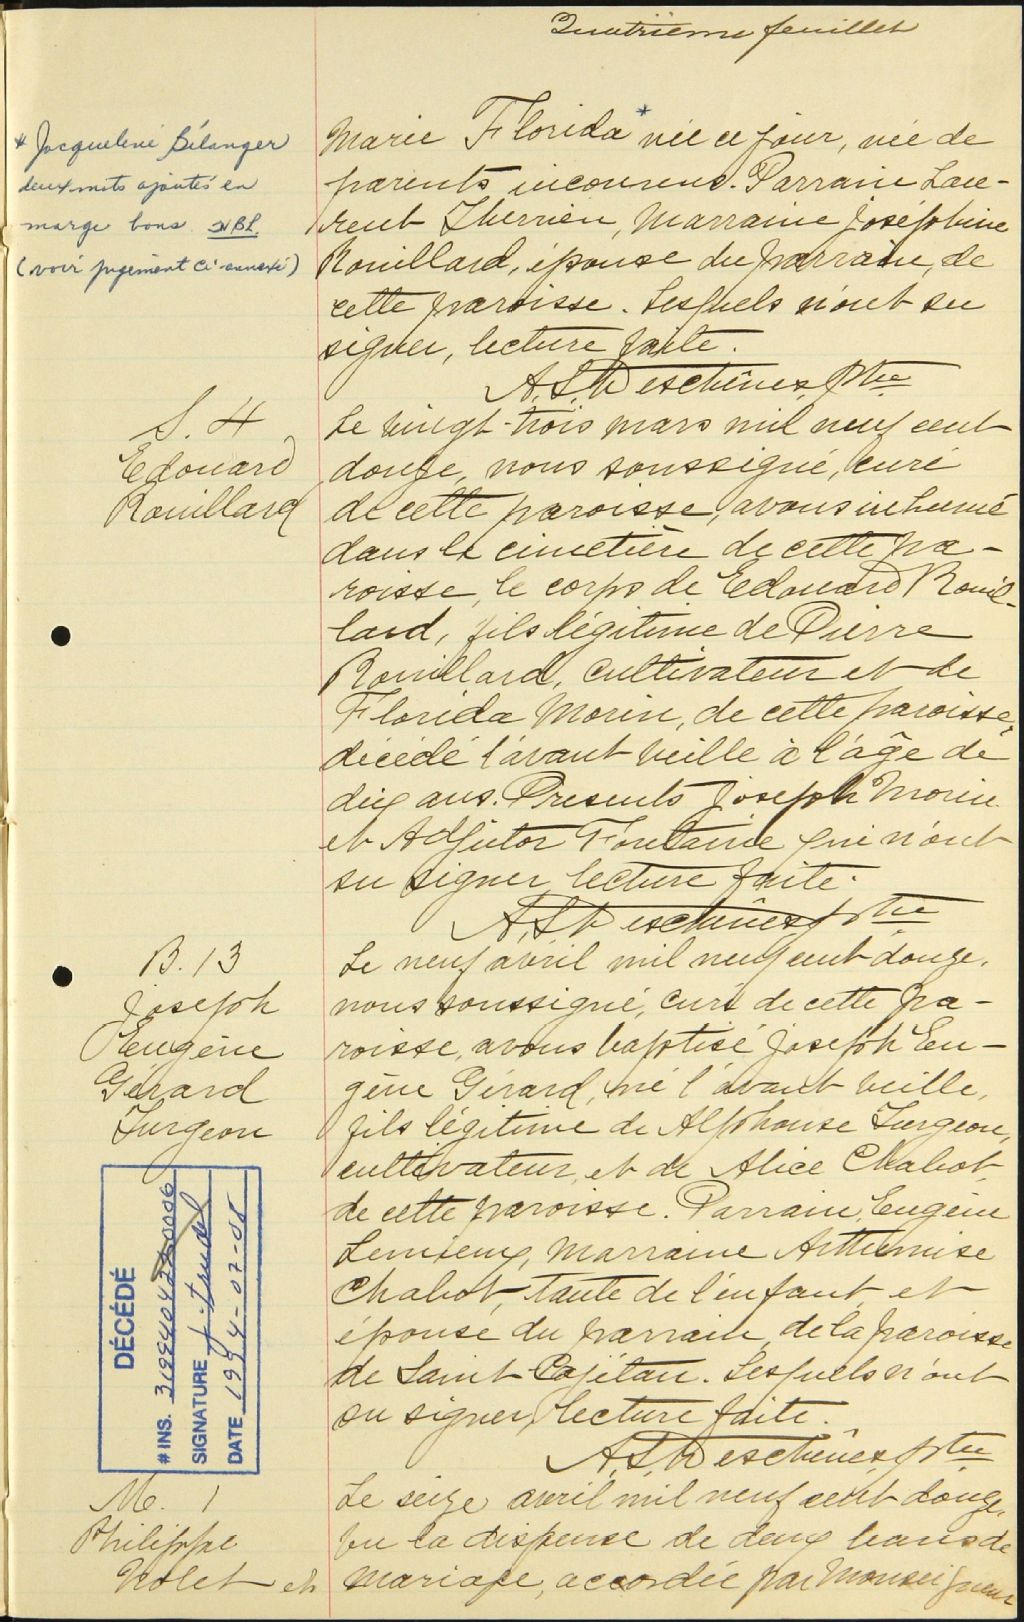 Quatrième feuillet
* Jacqueline Bélanger
deux mots ajoutés en
marge bons
(voir jugement ci-annexé)
Marie Florida * née ce jour, née de
parents inconnus. Parrain Lau-
rent Therrien, Marraine Joséphine
Rouillard, épouse du parrain, de
cette paroisse. Lesquels n'ont su
signer, lecture faite.
A. S. Deschênes, ptre
S. 4
Edouard
Rouillard
Le vingt-trois mars mil neuf cent
douze, nous soussigné, curé
de cette paroisse, avons inhumé
dans le cimetière de cette pa-
roisse, le corps de Edouard Rouil-
lard, fils légitime de Pierre
Rouillard, cultivateur et de
Florida Morin, de cette paroisse,
décédé l'avant veille à l'âge de
dix ans. Presents Joseph Morin
et Adjutor Fontaine qui n'ont
su signer lecture faite.
A. S. Deschênes, ptre
B. 13
Joseph
Eugène
Gérard
Turgeon
Le neuf avril mil neuf cent douze,
nous soussigné, curé de cette pa-
roisse, avons baptisé Joseph Eu-
gène Gérard, né l'avant veille,
fils légitime de Alphonse Turgeon,
cultivateur, et de Alice Chabot,
de cette paroisse. Parrain, Eugène
Lemieux, Marraine Arthémise
Chabot, tante de l'enfant et
épouse du parrain, de la paroisse
de Saint Cajétan. Lesquels n'ont
su signer, lecture faite.
A. S. Deschênes, ptre
DÉCÉDÉ
# INS.
SIGNATURE
DATE 1994-07-05
M. 1
Philippe
Nolet et
Le seize avril mil neuf cent douze,
vu la dispense de deux bans de
mariage, accordée par Monseigneur